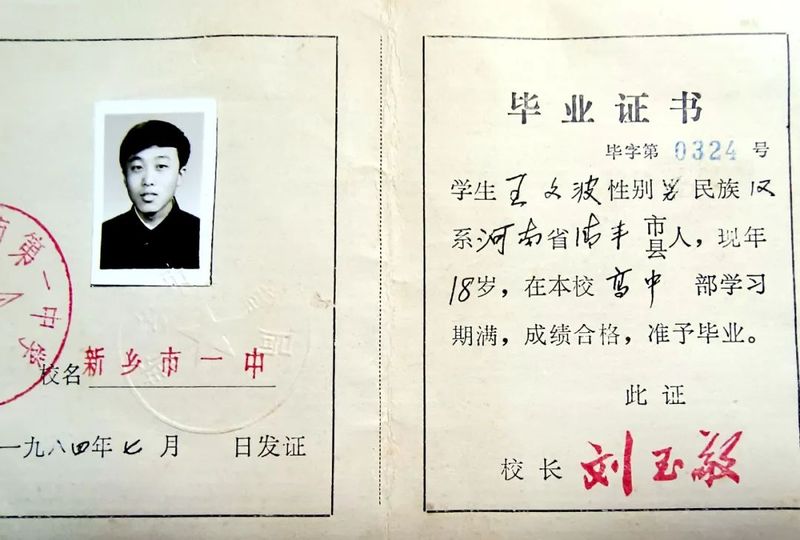 第一中学
校名新乡市一中
一九八四年七月 日发证
毕业证书
毕字第 0324 号
学生王文波性别男民族汉
系河南省清丰市县人，现年
18岁，在本校高中 部学习
期满，成绩合格，准予毕业。
此证
校长 刘玉敬